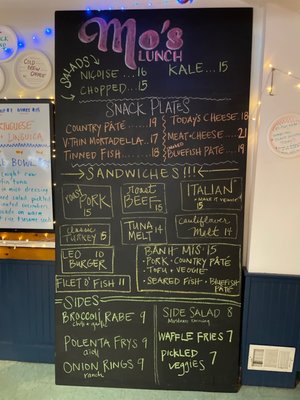 Mo's
LUNCH
SALADS
NICOISE ... 16
KALE ... 15
CHOPPED ... 15
SNACK PLATES
COUNTRY PATÉ ... 19
V. THIN MORTADELLA ... 17
TINNED FISH ... 18
TODAY'S CHEESE 18
MEAT & CHEESE ... 21
BLUEFISH PATÉ ... 19
SANDWICHES!!!
roast PORK 15
roast BEEF 15
ITALIAN
• MAKE IT VEGGIE!
15
classic TURKEY 15
TUNA MELT 14
Cauliflower MELT 14
LEO BURGER 10
FILET O' FISH 11
BANH MIS: 15
• PORK • COUNTRY PATE
• TOFU + VEGGIE
• SEARED FISH • BLUEFISH PATÉ
SIDES
BROCCOLI RABE 9
chili + garlic
POLENTA FRYS 9
aioli
ONION RINGS 9
ranch
SIDE SALAD 8
WAFFLE FRIES 7
pickled veggies 7
COLD BREW
PORTUGUESE
LINGUICA
BOWL